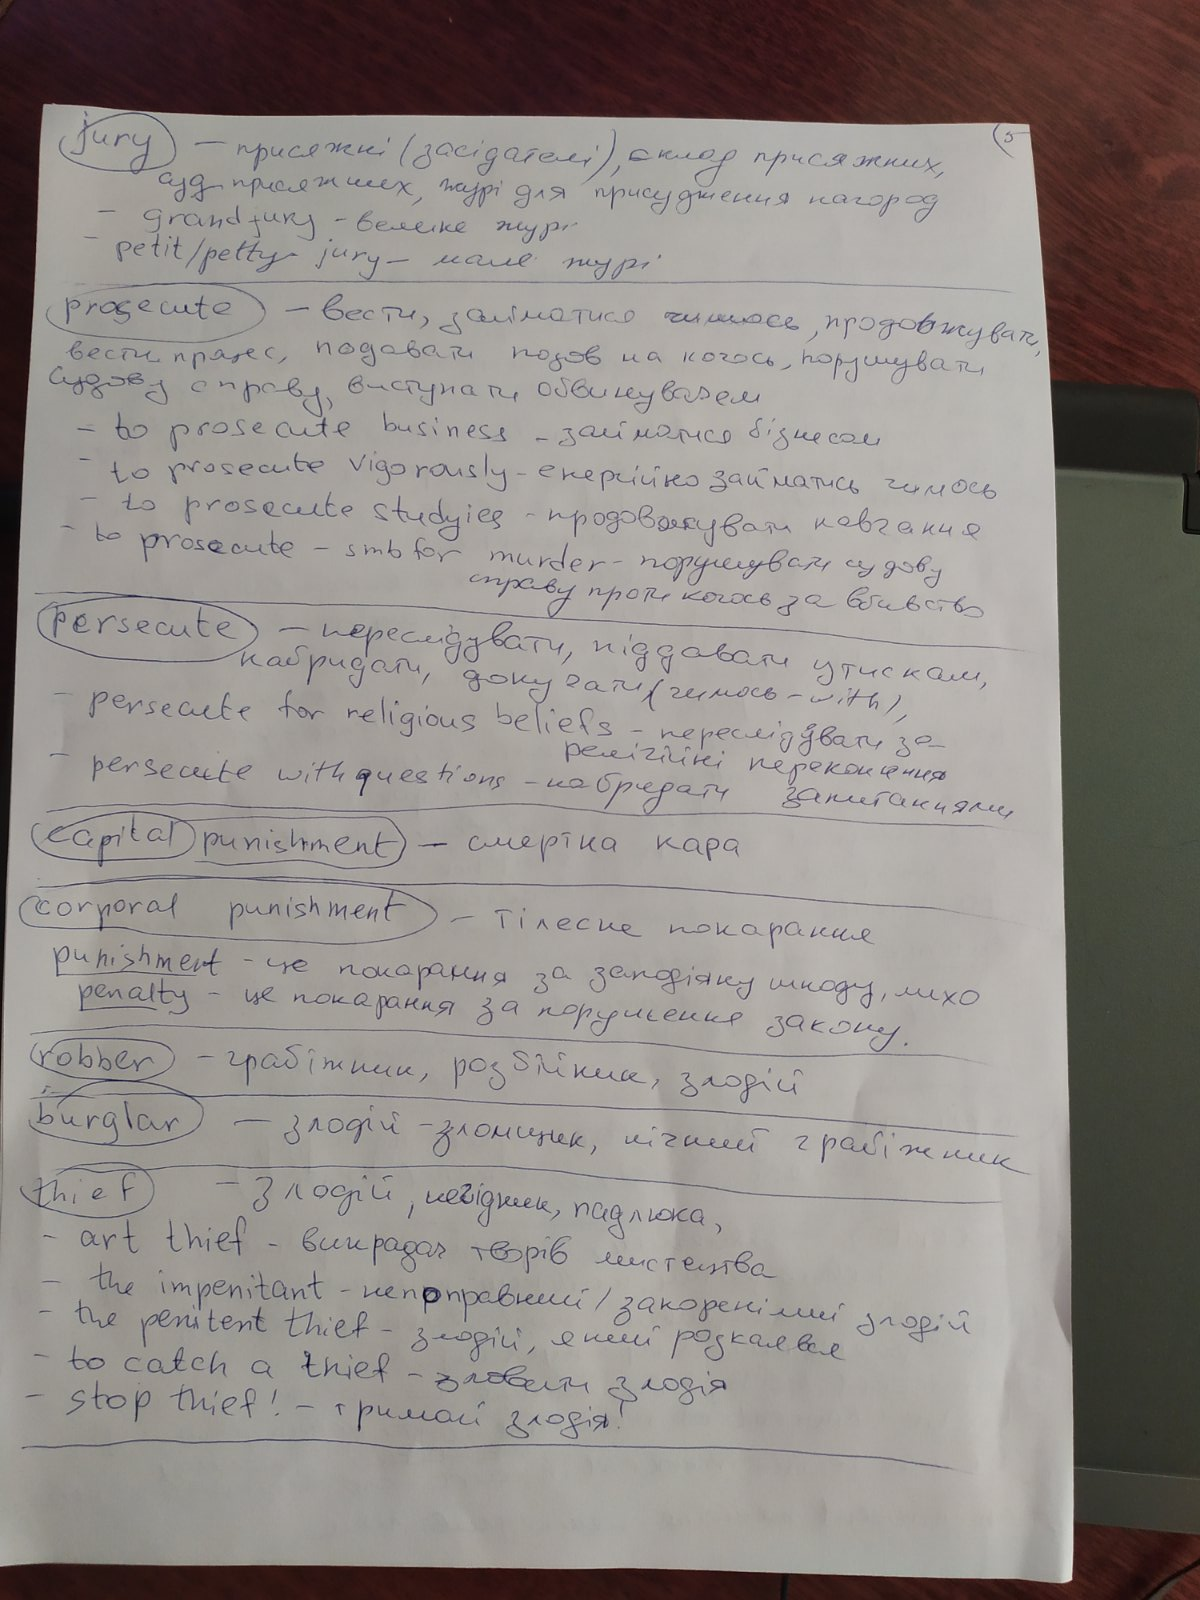 5
jury — присяжні (засідателі), склад присяжних,
суд присяжних, журі для присудження нагород
- grand jury - велике журі
- petit/petty jury - мале журі
prosecute — вести, займатися чимось, продовжувати,
вести процес, подавати позов на когось, порушувати
судову справу, виступати обвинувачем
- to prosecute business - займатися бізнесом
- to prosecute vigorously - енергійно займатись чимось
- to prosecute studyies - продовжувати навчання
- to prosecute - smb for murder - порушувати судову
справу проти когось за вбивство
persecute — переслідувати, піддавати утискам,
набридати, докучати (чимось - with),
- persecute for religious beliefs - переслідувати за
релігійні переконання
- persecute with questions - набридати запитаннями
capital punishment — смертна кара
corporal punishment — тілесне покарання
punishment - це покарання за заподіяну шкоду, лихо
penalty - це покарання за порушення закону.
robber — грабіжник, розбійник, злодій
burglar — злодій-зломщик, нічний грабіжник
thief — злодій, негідник, падлюка,
- art thief - викрадач творів мистецтва
- the impenitant - непоправний / закоренілий злодій
- the penitent thief - злодій, який розкаявся
- to catch a thief - зловити злодія
- stop thief! - тримай злодія!